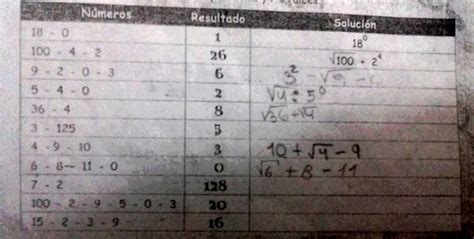 y raíces.
Números Resultado Solución
18 - 0 1 18⁰
100 - 4 - 2 26 √100 + 2⁴
9 - 2 - 0 - 3 6 3² - √9 -
5 - 4 - 0 2 √4 : 5⁰
36 - 4 8 √36 + √4
3 - 125 5
4 - 9 - 10 3 10 + √4 - 9
6 - 8 - 11 - 0 0 √6 + 8 - 11
7 - 2 128
100 - 2 - 9 - 5 - 0 - 3 20
15 - 2 - 3 - 9 16